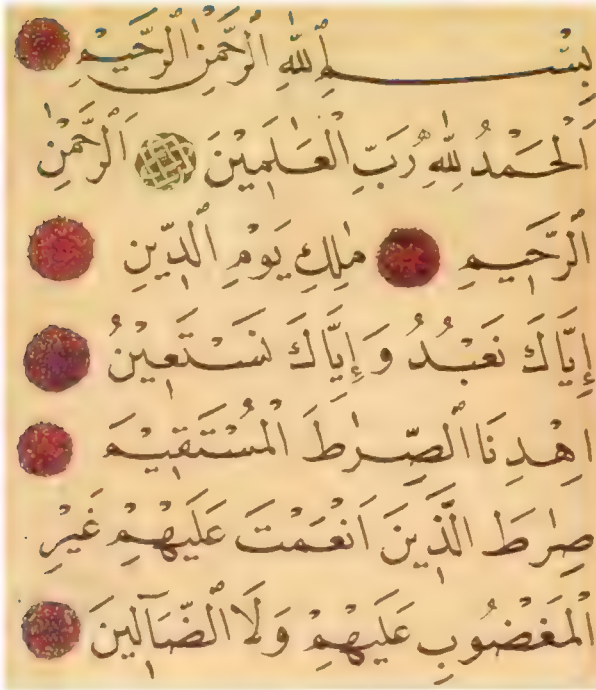 بِسْمِ ٱللَّهِ ٱلرَّحْمٰنِ ٱلرَّحِيمِ
اَلْحَمْدُ لِلّٰهِ رَبِّ ٱلْعَٰلَمِيْنَ اَلرَّحْمٰنِ
ٱلرَّحِيمِ مٰلِكِ يَوْمِ ٱلدِّينِ
إِيَّاكَ نَعْبُدُ وَإِيَّاكَ نَسْتَعِيْنُ
اِهْدِنَا ٱلصِّرٰطَ ٱلْمُسْتَقِيْمَ
صِرٰطَ ٱلَّذِينَ اَنْعَمْتَ عَلَيْهِمْ غَيْرِ
ٱلْمَغْضُوبِ عَلَيْهِمْ وَلَا ٱلضَّآلِّينَ